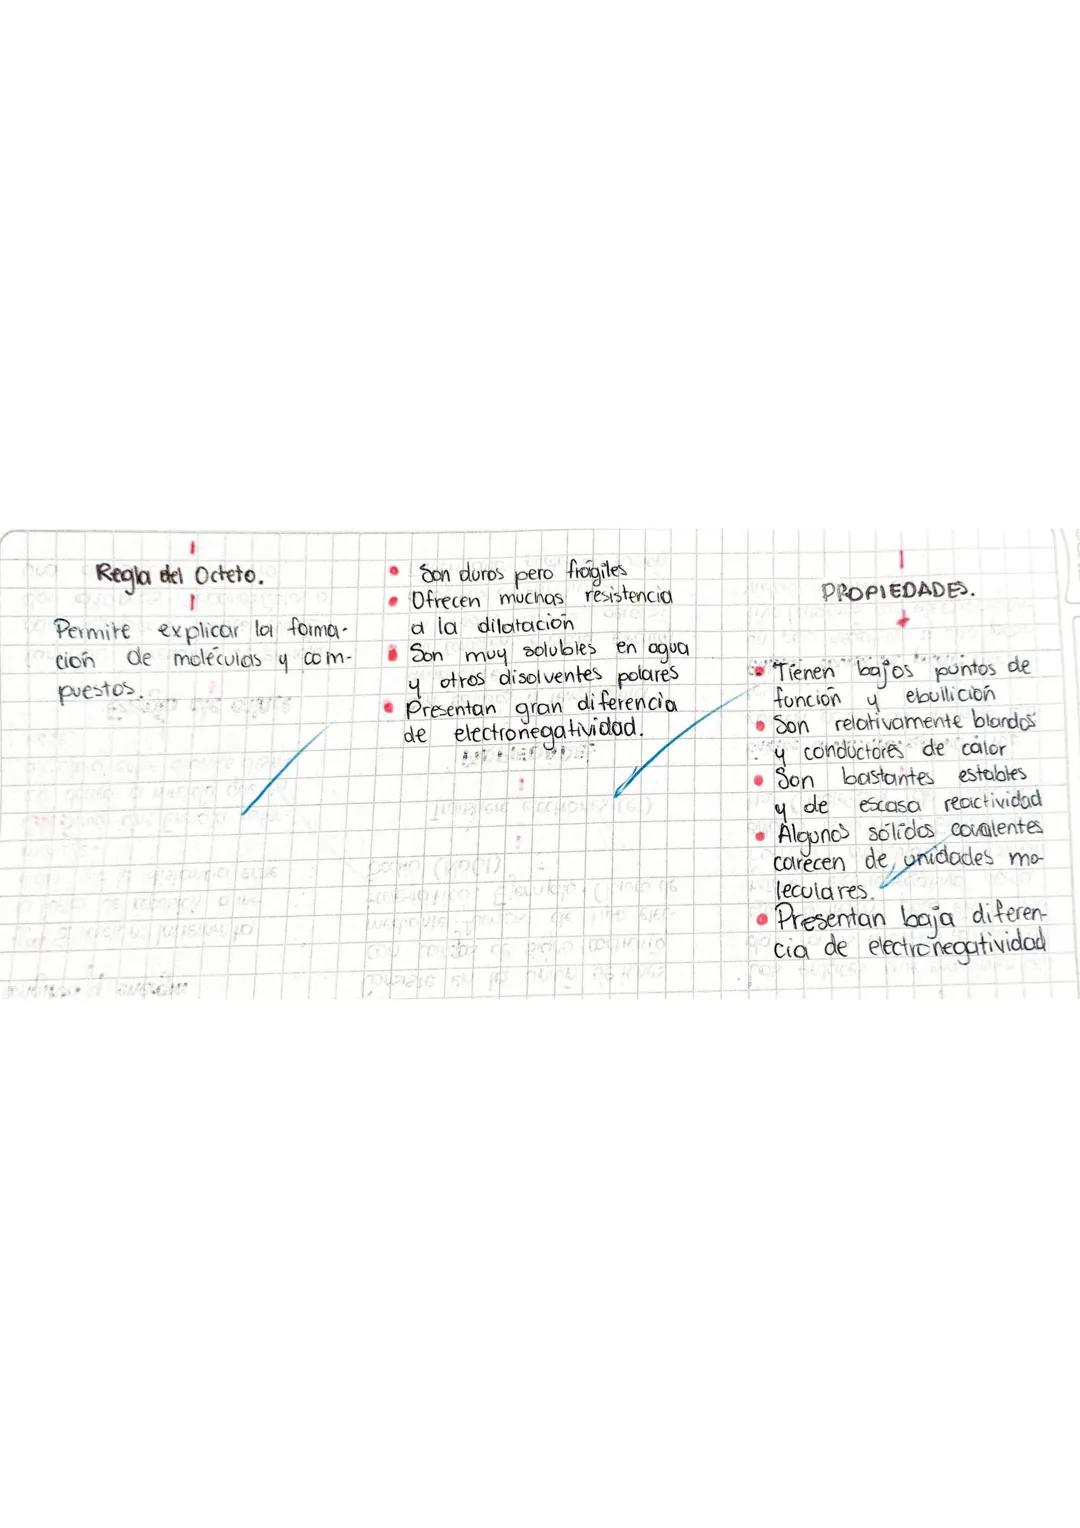 Regla del Octeto.
Permite explicar la forma-
ción de moléculas y com-
puestos.
• Son duros pero frágiles
• Ofrecen muchas resistencia
a la dilatación
• Son muy solubles en agua
y otros disolventes polares
• Presentan gran diferencia
de electronegatividad.
PROPIEDADES.
• Tienen bajos puntos de
función y ebullición
• Son relativamente blandos
y conductores de calor
• Son bastantes estables
y de escasa reactividad
• Algunos sólidos covalentes
carecen de unidades mo-
leculares.
• Presentan baja diferen-
cia de electronegatividad